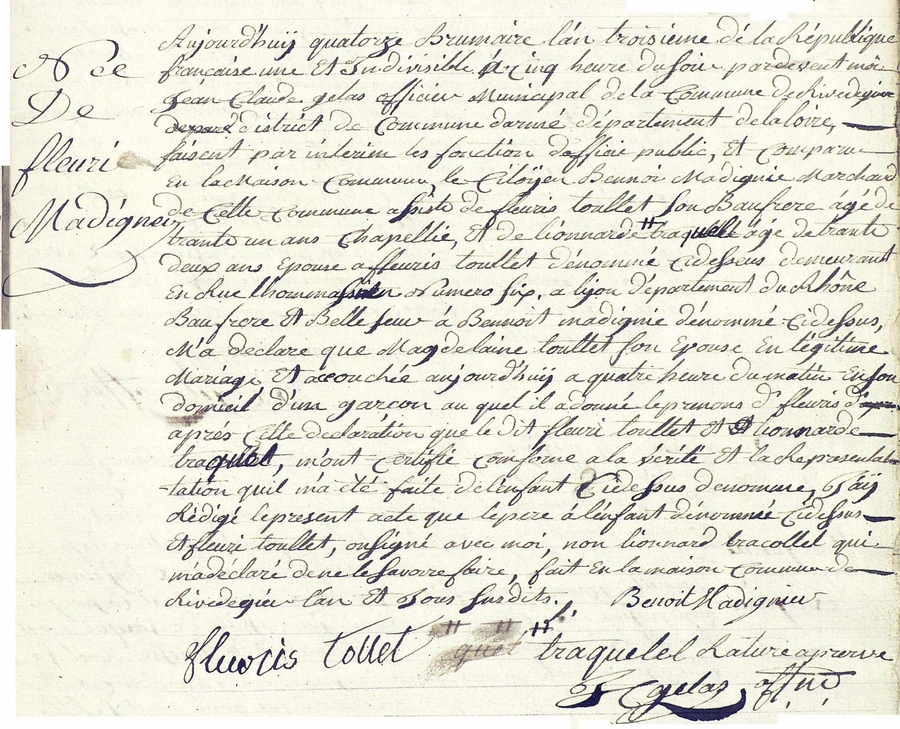 Née
De
fleuri
Madignier
Aujourd'huij quatorze Brumaire l'an troisieme de la République
francaise une Et Indivisible, a Cinq heure du soir pardevent moi
Jean Claude gelas officier Municipal de la Commune de Rivedegier
district de Commune d'armé département de la loire,
faisent par interim les fonction d'officié public, Et Comparu
En la Maison Commune, le Citoÿen Bennoi Madignié Marchand
de Cette Commune assisté de fleuris toullet son Baufrere âgé de
trante un ans Chapellié, Et de lionnarde traquelet âgé de trante
deux ans Epouse a fleuris toullet dénommé Cidessus demeurant
En Rue Numero six. a lijon département du Rhône
Baufrere Et Belle seur à Bennoit madignié dénommé Cidessus,
M'a déclaré que Magdelaine toullet son Epouse En légitime
Mariage Et accouchée aujourd'huij a quatre heure du matin En son
domicil d'un garçon au quel il a donné le prenons d'fleuris
aprés Cette declaration que le dit fleuri toullet Et lionnarde
traquelet, m'ont Certifié Comforme a la vérité Et la Representat
tation quil m'a été faite de l'enfant Cidessus denommé, J'aij
Rédigé le present acte que le pere à l'enfant dénommé Cidessus
Et fleuri toullet, on signé avec moi, non lionnard tracollet qui
m'a déclaré de ne le savoire faire, fait En la maison Commune de
Rivedegier l'an Et Jour susdits. Benoit Madignier
fleuris tollet quel traquelel Rature aprouvé
J C gelas off mu